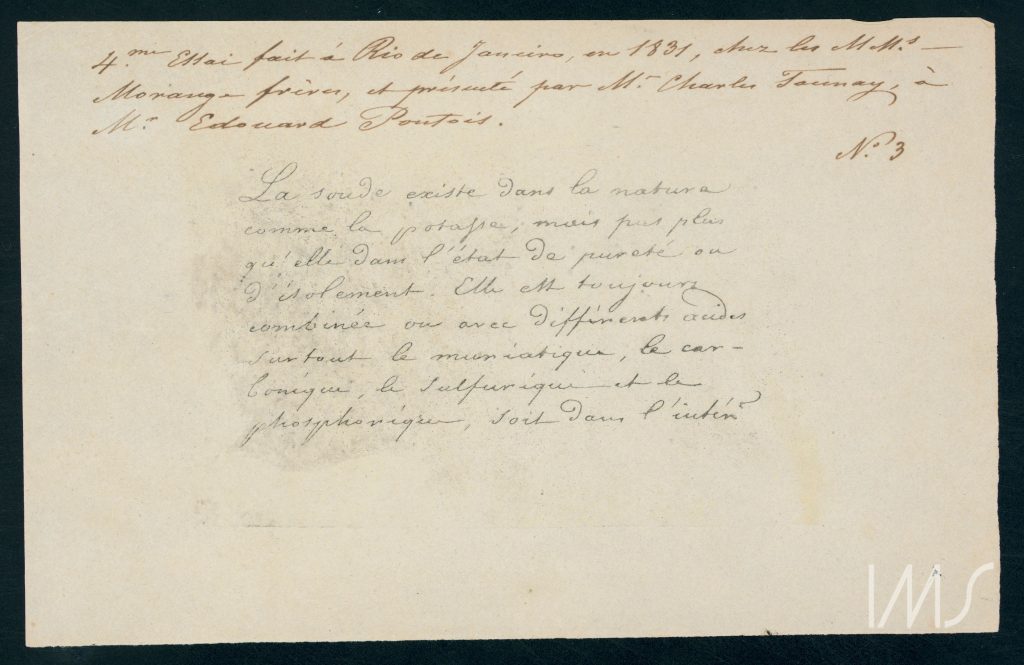 4.me Essai fait à Rio de Janeiro, en 1831, chez les MM.s —
Morange frères, et présenté par Mr. Charles Taunay, à
Mr. Edouard Pontois.
N.o 3
La soude existe dans la natura
comme la potasse, mais pas plus
qu'elle dans l'état de pureté ou
d'isolement. Elle est toujours
combinée ou avec différents acides
surtout le muriatique, le car-
bonique, le sulfurique et le
phosphorique, soit dans l'intérr
IMS